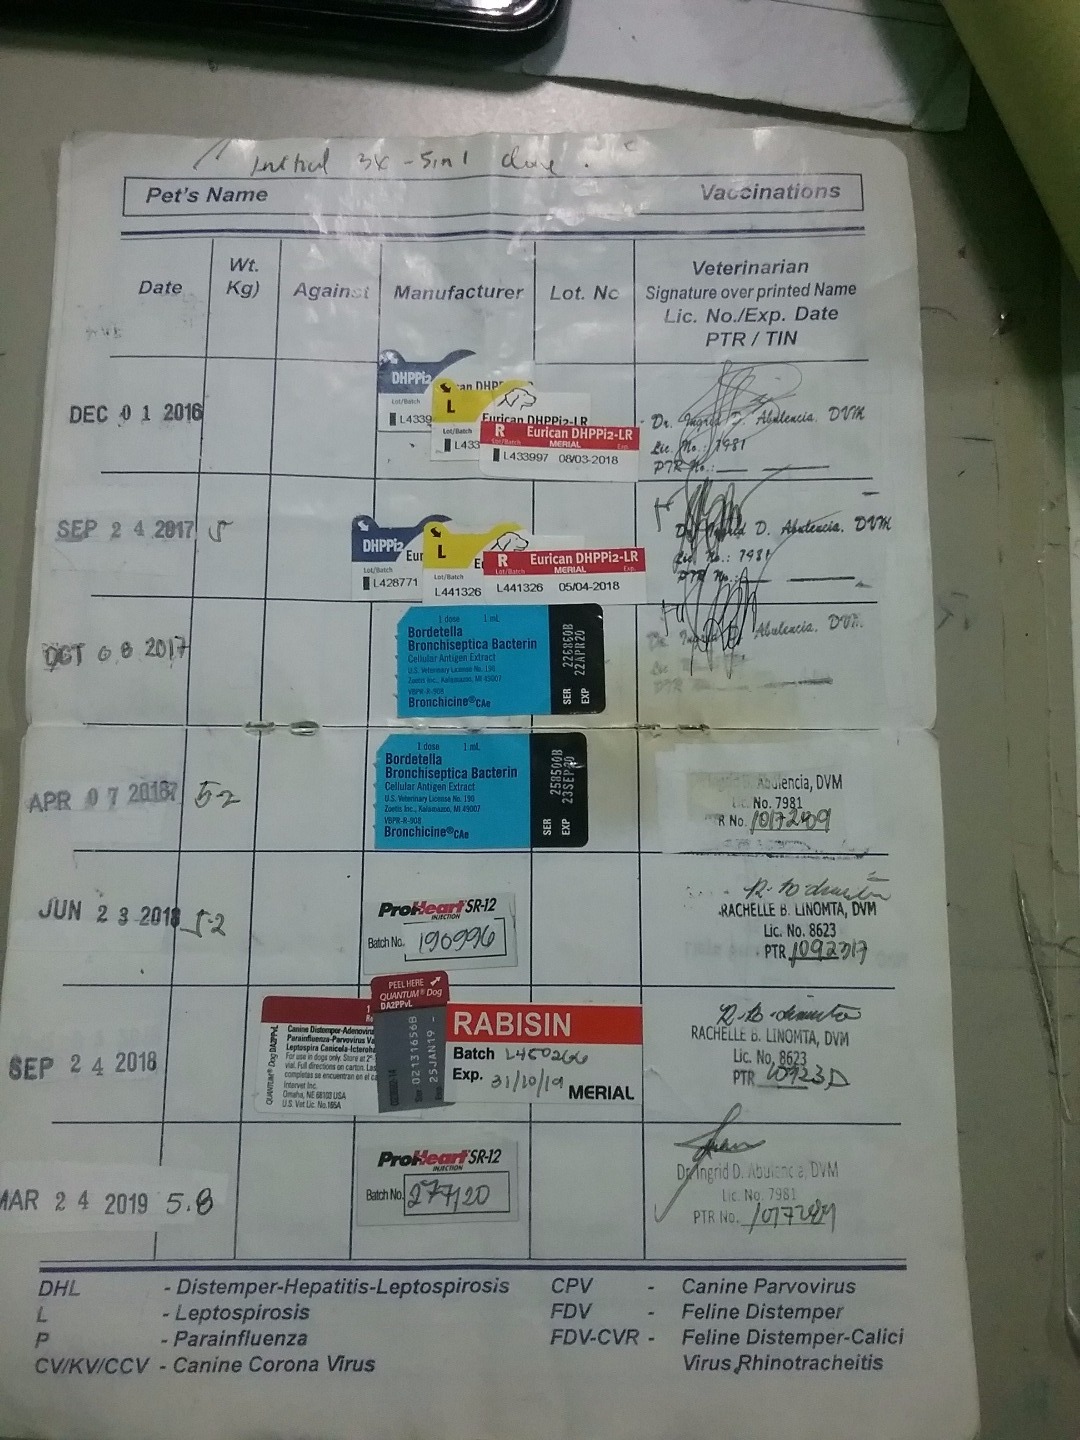 Initial 3x - 5in1 done.
Pet's Name Vaccinations
Date Wt. Kg) Against Manufacturer Lot. No Veterinarian
Signature over printed Name
Lic. No./Exp. Date
PTR / TIN
DEC 01 2016
DHPPi2
Lot/Batch
L4339
L
Lot/Batch
L433
Eurican DHPPi2-LR
R Eurican DHPPi2-LR
Lot/Batch MERIAL Exp.
L433997 08/03-2018
Dr. Ingrid D. Abulencia, DVM
Lic. No.: 7981
PTR No.:
SEP 24 2017 5
DHPPi2
Eur
Lot/Batch
L428771
L
L441326
R Eurican DHPPi2-LR
Lot/Batch MERIAL Exp.
L441326 05/04-2018
Dr. Ingrid D. Abulencia, DVM
Lic. No.: 7981
PTR No.:
OCT 08 2017
1 dose 1 mL
Bordetella
Bronchiseptica Bacterin
Cellular Antigen Extract
U.S. Veterinary License No. 190
Zoetis Inc., Kalamazoo, MI 49007
VBPR-R-908
Bronchicine®CAe
SER 226860B
EXP 22APR20
Dr. Ingrid D. Abulencia, DVM
APR 07 2018 5.2
1 dose 1 mL
Bordetella
Bronchiseptica Bacterin
Cellular Antigen Extract
U.S. Veterinary License No. 190
Zoetis Inc., Kalamazoo, MI 49007
VBPR-R-908
Bronchicine®CAe
SER 258500B
EXP 23SEP20
Abulencia, DVM
Lic. No. 7981
R No. 1017289
JUN 23 2018 5.2
ProHeart SR-12
INJECTION
Batch No. 190996
RACHELLE B. LINOMTA, DVM
Lic. No. 8623
PTR 1092317
SEP 24 2018
PEEL HERE
QUANTUM® Dog
DA2PPvL
QUANTUM® Dog DA2PPvL
Canine Distemper-Adenoviru
Parainfluenza-Parvovirus Va
Leptospira Canicola-Icteroha
For use in dogs only. Store at 2°-
vial. Full directions on carton. Las
completas se encuentran en el ca
Intervet Inc.
Omaha, NE 68103 USA
U.S. Vet Lic. No.165A
02131656B
25JAN19
RABISIN
Batch L450266
Exp. 31/10/19 MERIAL
RACHELLE B. LINOMTA, DVM
Lic. No. 8623
PTR
MAR 24 2019 5.8
ProHeart SR-12
INJECTION
Batch No. 277120
Dr. Ingrid D. Abulencia, DVM
Lic. No. 7981
PTR No. 1017289
DHL - Distemper-Hepatitis-Leptospirosis CPV - Canine Parvovirus
L - Leptospirosis FDV - Feline Distemper
P - Parainfluenza FDV-CVR - Feline Distemper-Calici
CV/KV/CCV - Canine Corona Virus Virus,Rhinotracheitis